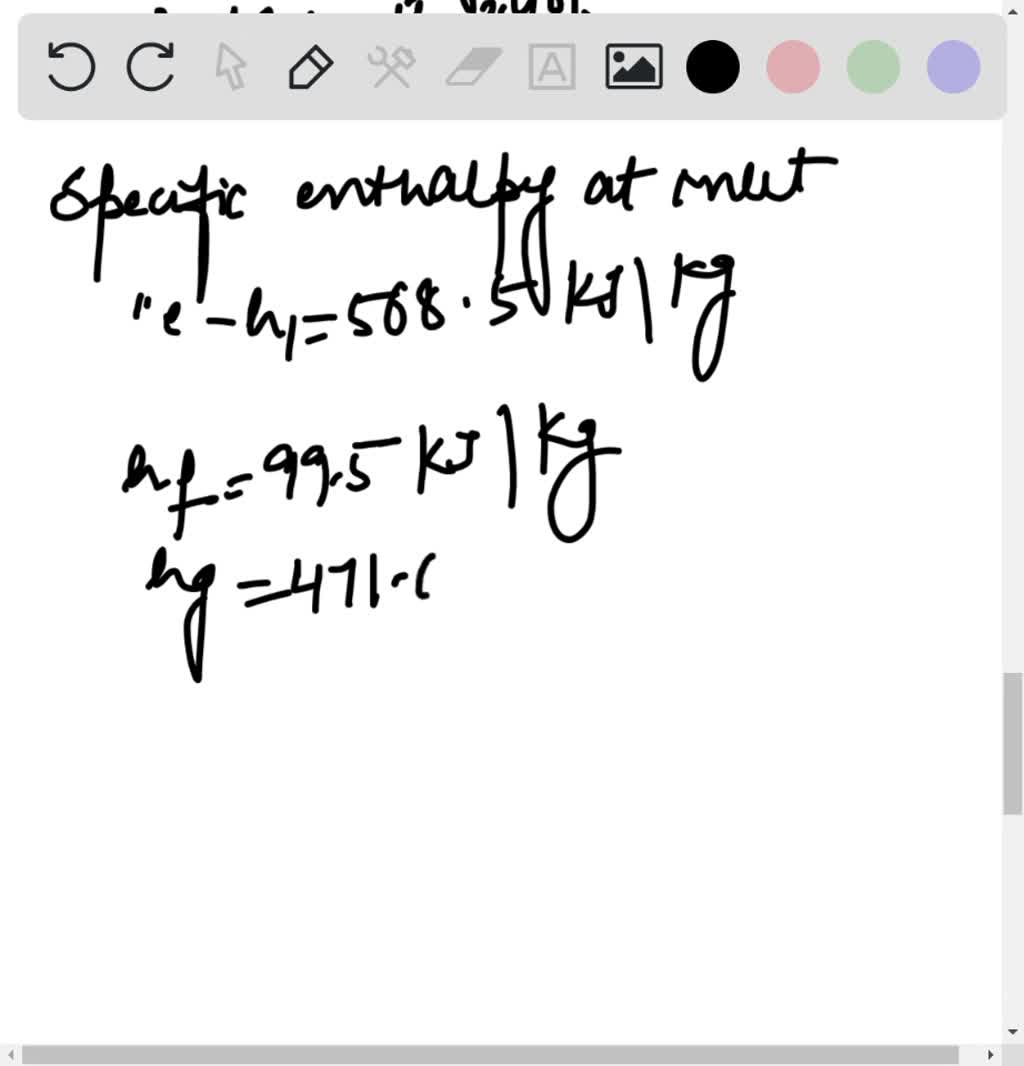 Specific enthalpy at inlet
"e - h1 = 568.5 kJ | kg
hf = 99.5 kJ | kg
hg = 471.6